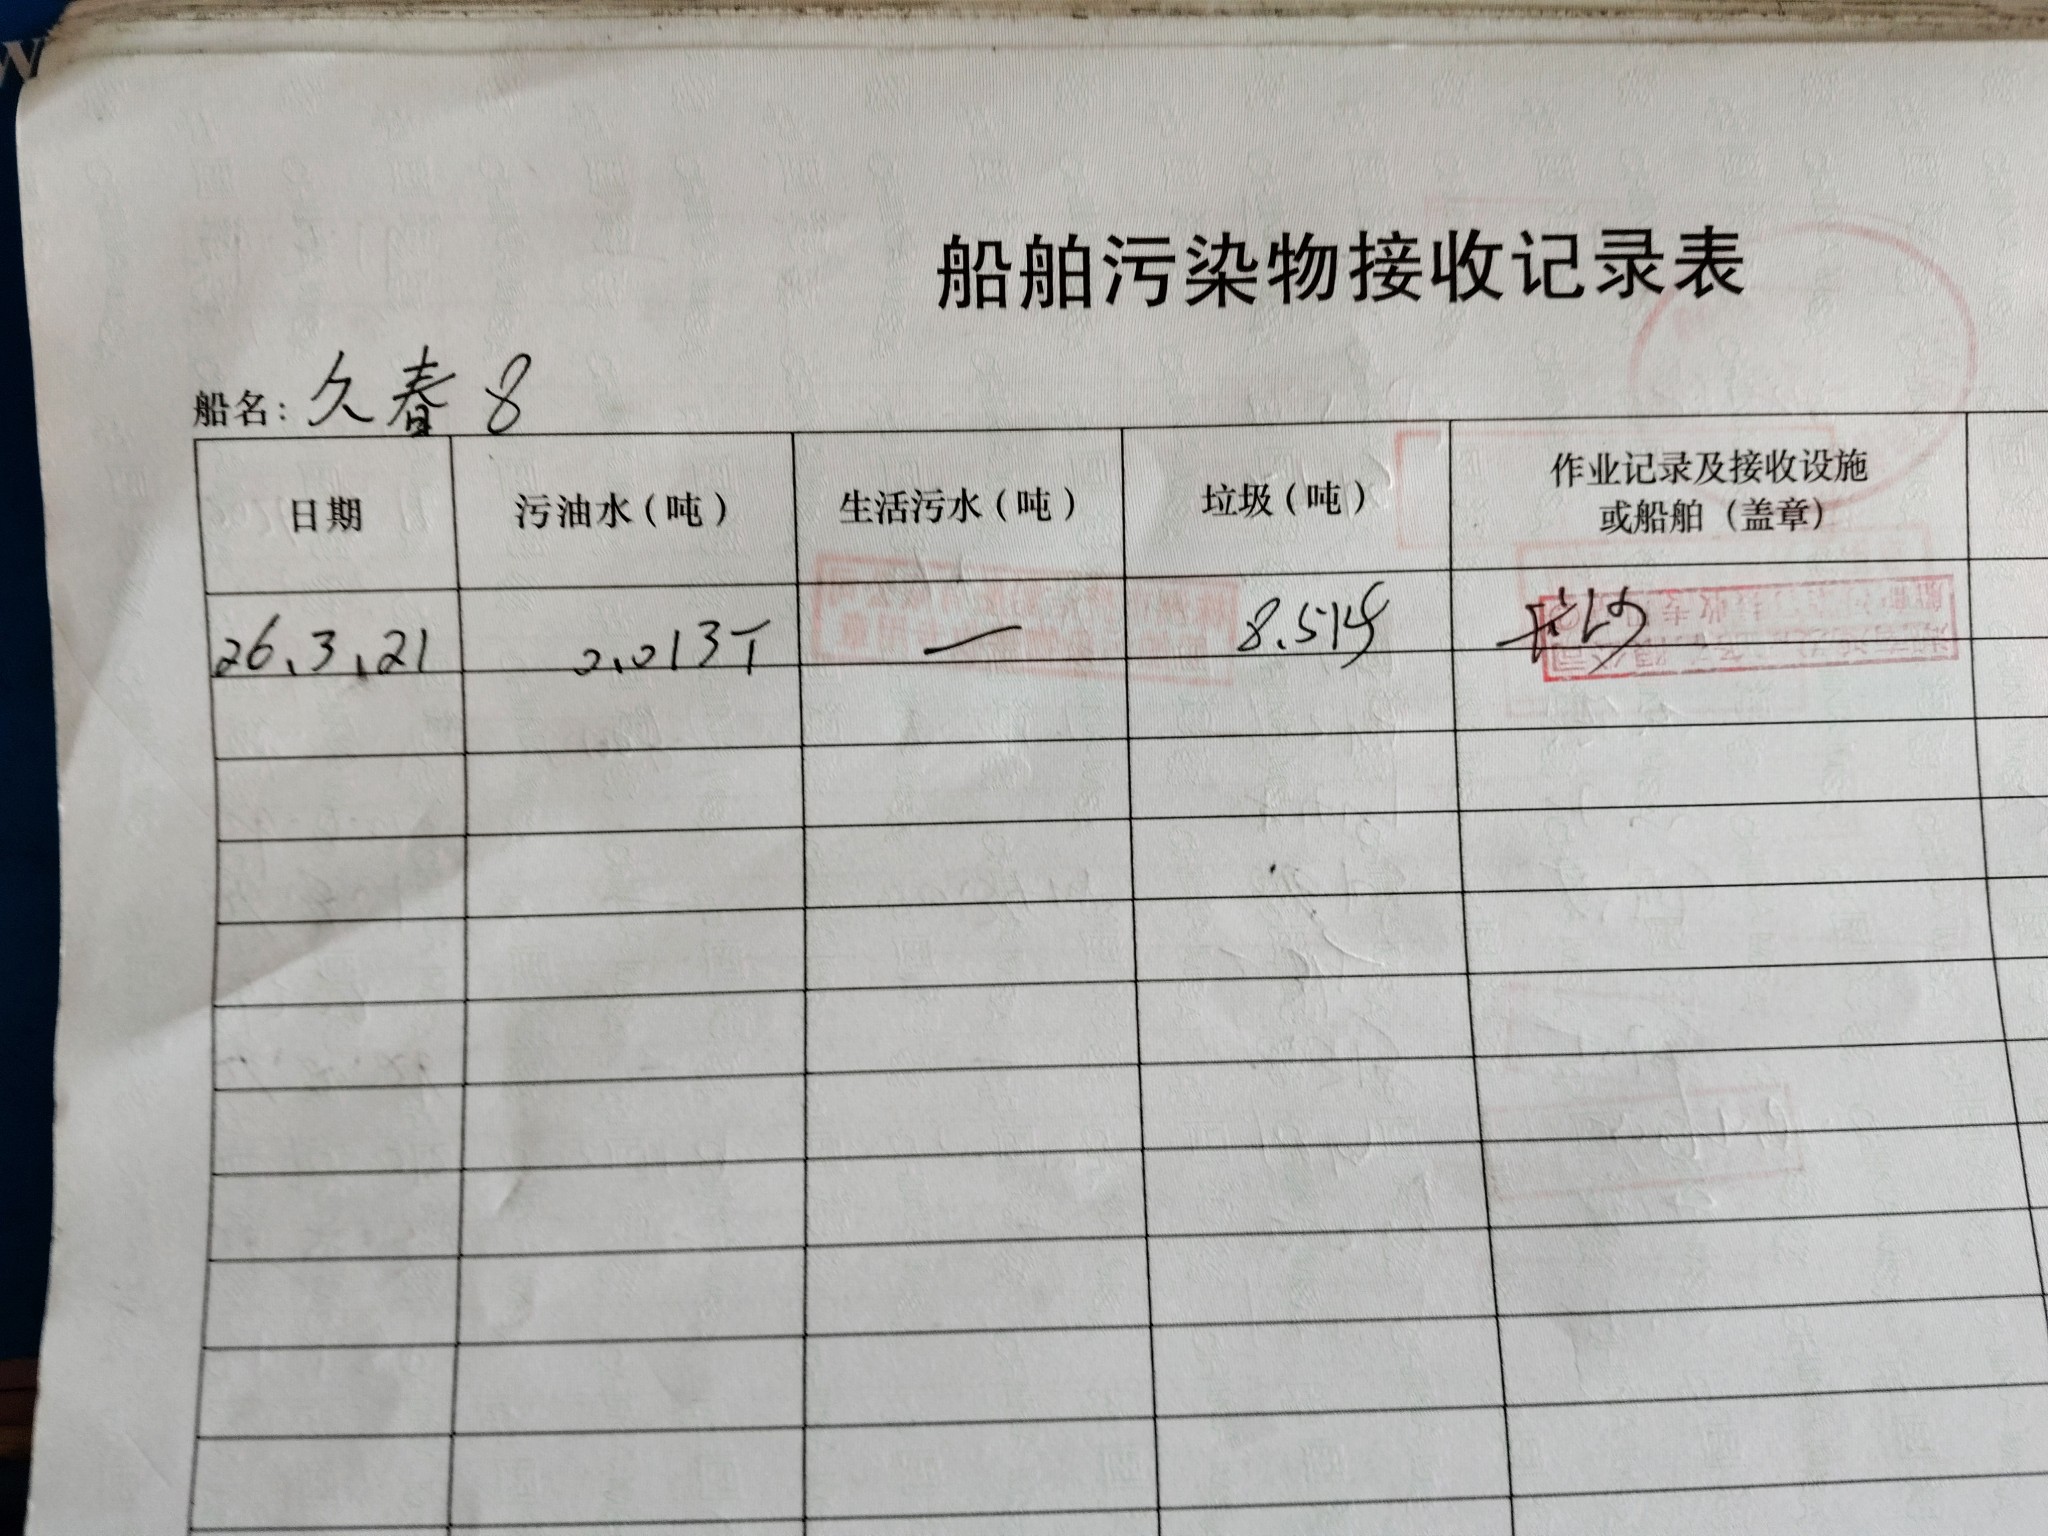 船舶污染物接收记录表
船名：久春 8
日期 污油水（吨） 生活污水（吨） 垃圾（吨） 作业记录及接收设施或船舶（盖章）
26.3.21 0.013T — 长沙